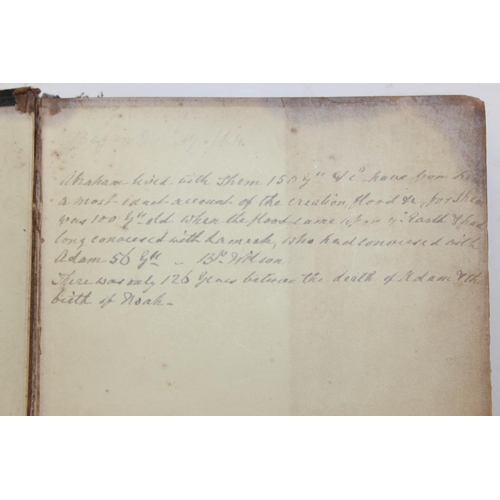 Abraham lived with Shem 150 Yrs & c^d have from him
a most exact account of the creation, flood &c, for Shem
was 100 Yrs old when the flood came upon ye Earth & had
long conversed with Lamech, who had conversed with
Adam 56 Yrs — Bp. Wilson
There was only 126 Years between the death of Adam & the
birth of Noah —